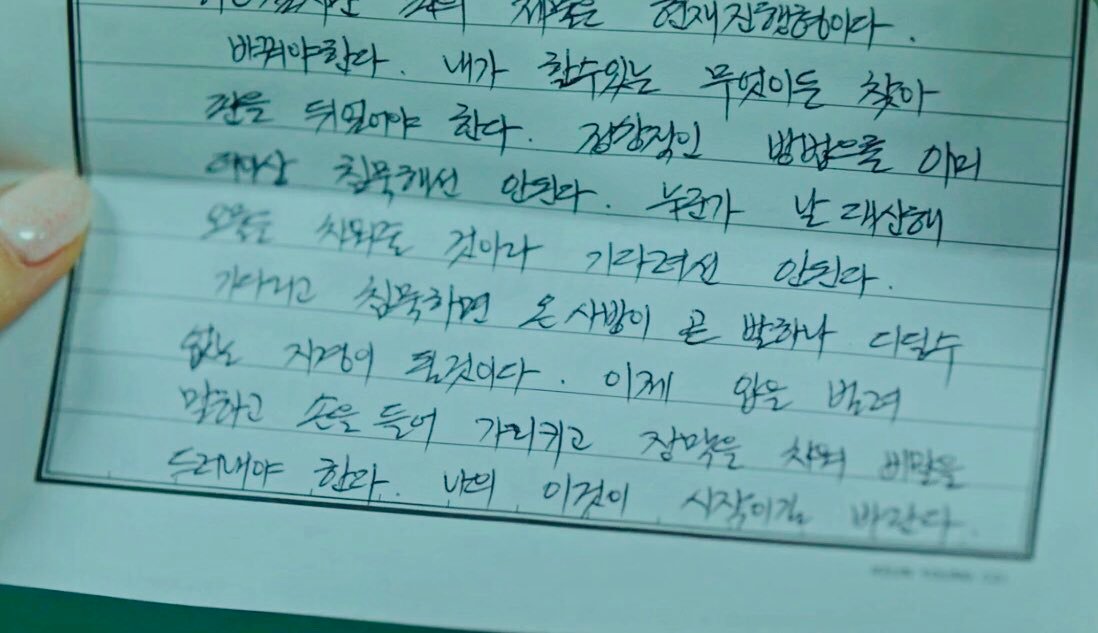 제물은 현재진행형이다.
바꿔야한다. 내가 할수있는 무엇이든 찾아
판을 뒤엎어야 한다. 정상적인 방법으론 이미
더이상 침묵해선 안된다. 누군가 날 대신해
오물을 치워줄 것이라 기다려선 안된다.
기다리고 침묵하면 온 사방이 곧 발하나 디딜수
없는 지경이 될것이다. 이제 입을 벌려
말하고 손을 들어 가리키고 장막을 치워 비밀을
드러내야 한다. 나의 이것이 시작이길 바란다.